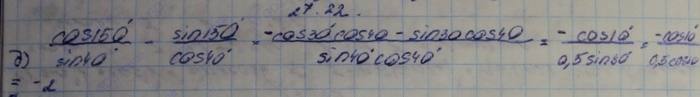 27.22.
д) cos150°/sin40° - sin150°/cos40° = -cos30°cos40 - sin30cos40/sin40°cos40° = -cos10°/0,5sin80° = -cos10/0,5cos10
= -2